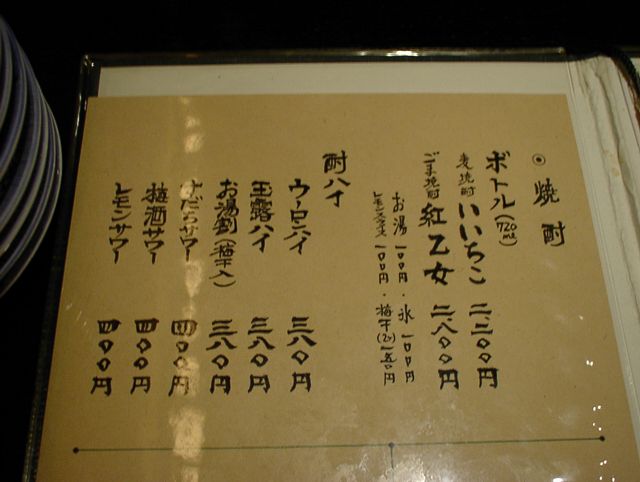 ◉焼酎
ボトル(720ml)
麦焼酎 いいちこ 二、二〇〇円
ごま焼酎 紅乙女 二、八〇〇円
お湯 一〇〇円・氷 一〇〇円
レモンスライス 一〇〇円・梅干(2コ)一五〇円
酎ハイ
ウーロンハイ 三八〇円
玉露ハイ 三八〇円
お湯割(梅干入) 三八〇円
すだちサワー 四〇〇円
梅酒サワー 四〇〇円
レモンサワー 四〇〇円